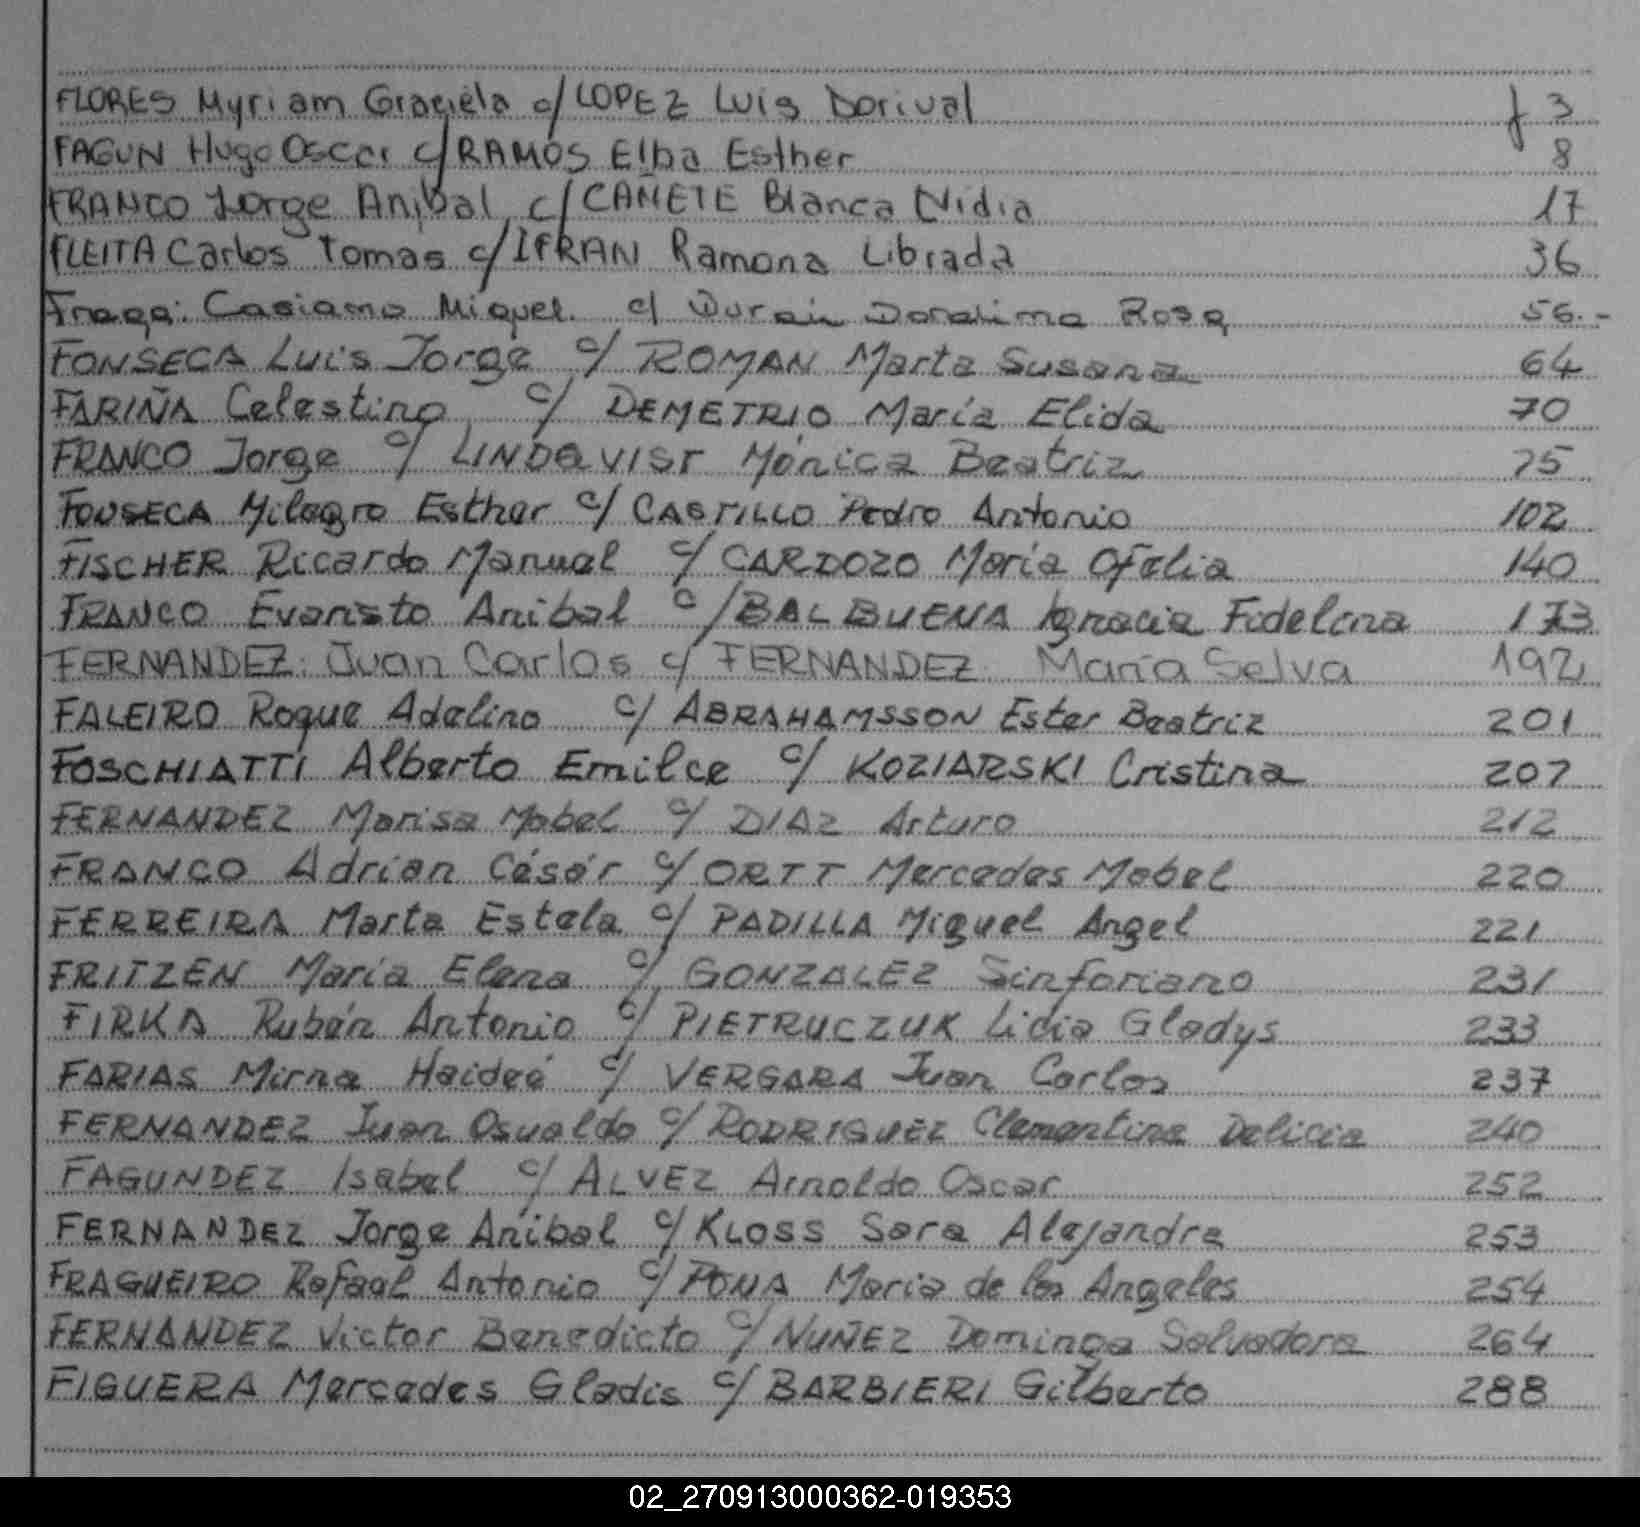 FLORES Myriam Graciela c/ LOPEZ Luis Dorival f 3
FAGUN Hugo Oscar c/ RAMOS Elba Esther 8
FRANCO Jorge Anibal c/ CAÑETE Blanca Nidia 17
FLEITA Carlos Tomas c/ IFRAN Ramona Librada 36
Fraga: Casiamo Miguel. c/ Doralima Rosa 56.-
FONSECA Luis Jorge c/ ROMAN Marta Susana 64
FARIÑA Celestino c/ DEMETRIO María Elida 70
FRANCO Jorge c/ LINDQVIST Mónica Beatriz 75
FONSECA Milagro Esther c/ CASTILLO Pedro Antonio 102
FISCHER Ricardo Manuel c/ CARDOZO María Ofelia 140
FRANCO Evaristo Anibal c/ BALBUENA Ignacia Fidelina 173
FERNANDEZ: Juan Carlos c/ FERNANDEZ María Selva 192
FALEIRO Roque Adelino c/ ABRAHAMSSON Ester Beatriz 201
FOSCHIATTI Alberto Emilce c/ KOZIARSKI Cristina 207
FERNANDEZ Marisa Mabel c/ DIAZ Arturo 212
FRANCO Adrian César c/ ORTT Mercedes Mabel 220
FERREIRA Marta Estela c/ PADILLA Miguel Angel 221
FRITZEN María Elena c/ GONZALEZ Sinforiano 231
FIRKA Rubén Antonio c/ PIETRUCZUK Lidia Gladys 233
FARIAS Mirna Haideé c/ VERGARA Juan Carlos 237
FERNANDEZ Juan Osvaldo c/ RODRIGUEZ Clementina Delicia 240
FAGUNDEZ Isabel c/ ALVEZ Arnoldo Oscar 252
FERNANDEZ Jorge Anibal c/ KLOSS Sara Alejandra 253
FRAGUEIRO Rafael Antonio c/ POMA Maria de los Angeles 254
FERNANDEZ Victor Benedicto c/ NUÑEZ Dominga Salvadora 264
FIGUERA Mercedes Gladis c/ BARBIERI Gilberto 288
02_270913000362-019353